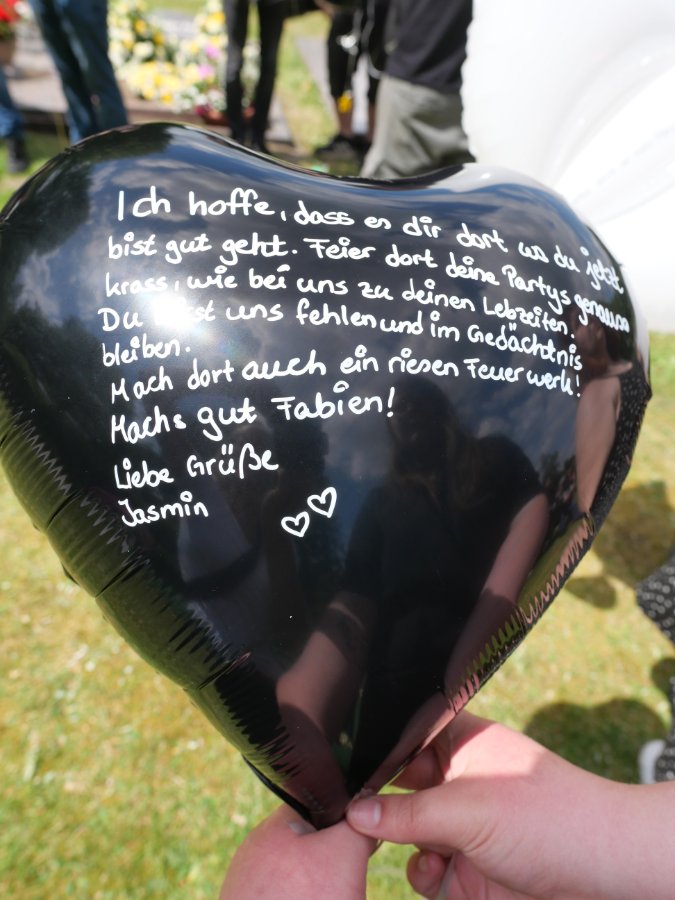 Ich hoffe, dass es dir dort wo du jetzt
bist gut geht. Feier dort deine Partys genauso
krass, wie bei uns zu deinen Lebzeiten.
Du wirst uns fehlen und im Gedächtnis
bleiben.
Mach dort auch ein riesen Feuerwerk!
Machs gut Fabien!
Liebe Grüße
Jasmin